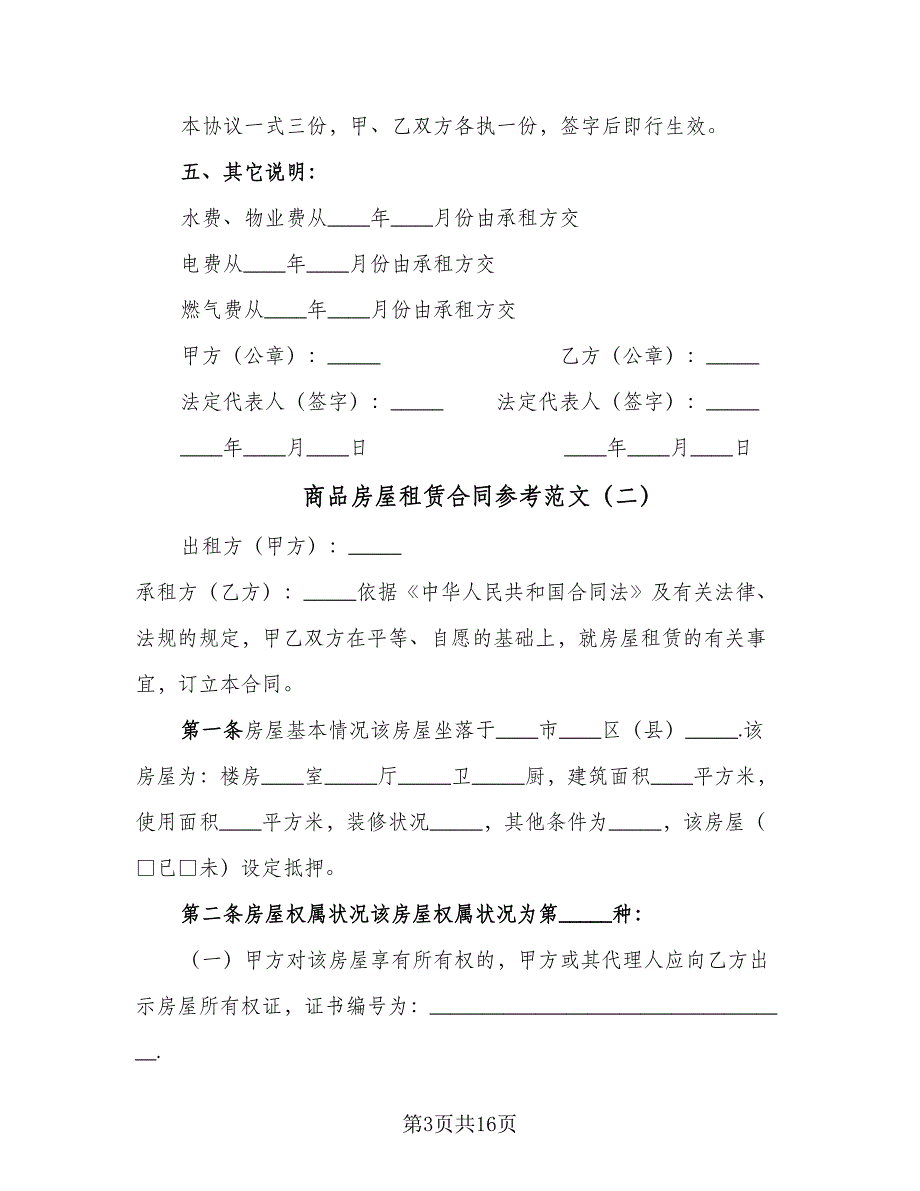 本协议一式三份，甲、乙双方各执一份，签字后即行生效。
五、其它说明：
水费、物业费从____年____月份由承租方交
电费从____年____月份由承租方交
燃气费从____年____月份由承租方交
甲方（公章）：_____ 乙方（公章）：_____
法定代表人（签字）：_____ 法定代表人（签字）：_____
____年____月____日 ____年____月____日
商品房屋租赁合同参考范文（二）
出租方（甲方）：_____
承租方（乙方）：_____依据《中华人民共和国合同法》及有关法律、
法规的规定，甲乙双方在平等、自愿的基础上，就房屋租赁的有关事
宜，订立本合同。
第一条房屋基本情况该房屋坐落于____市____区（县）_____.该
房屋为：楼房____室_____厅_____卫_____厨，建筑面积____平方米，
使用面积____平方米，装修状况_____，其他条件为_____，该房屋（
□已□未）设定抵押。
第二条房屋权属状况该房屋权属状况为第_____种：
（一）甲方对该房屋享有所有权的，甲方或其代理人应向乙方出
示房屋所有权证，证书编号为：_________________________________
__.
第3页共16页